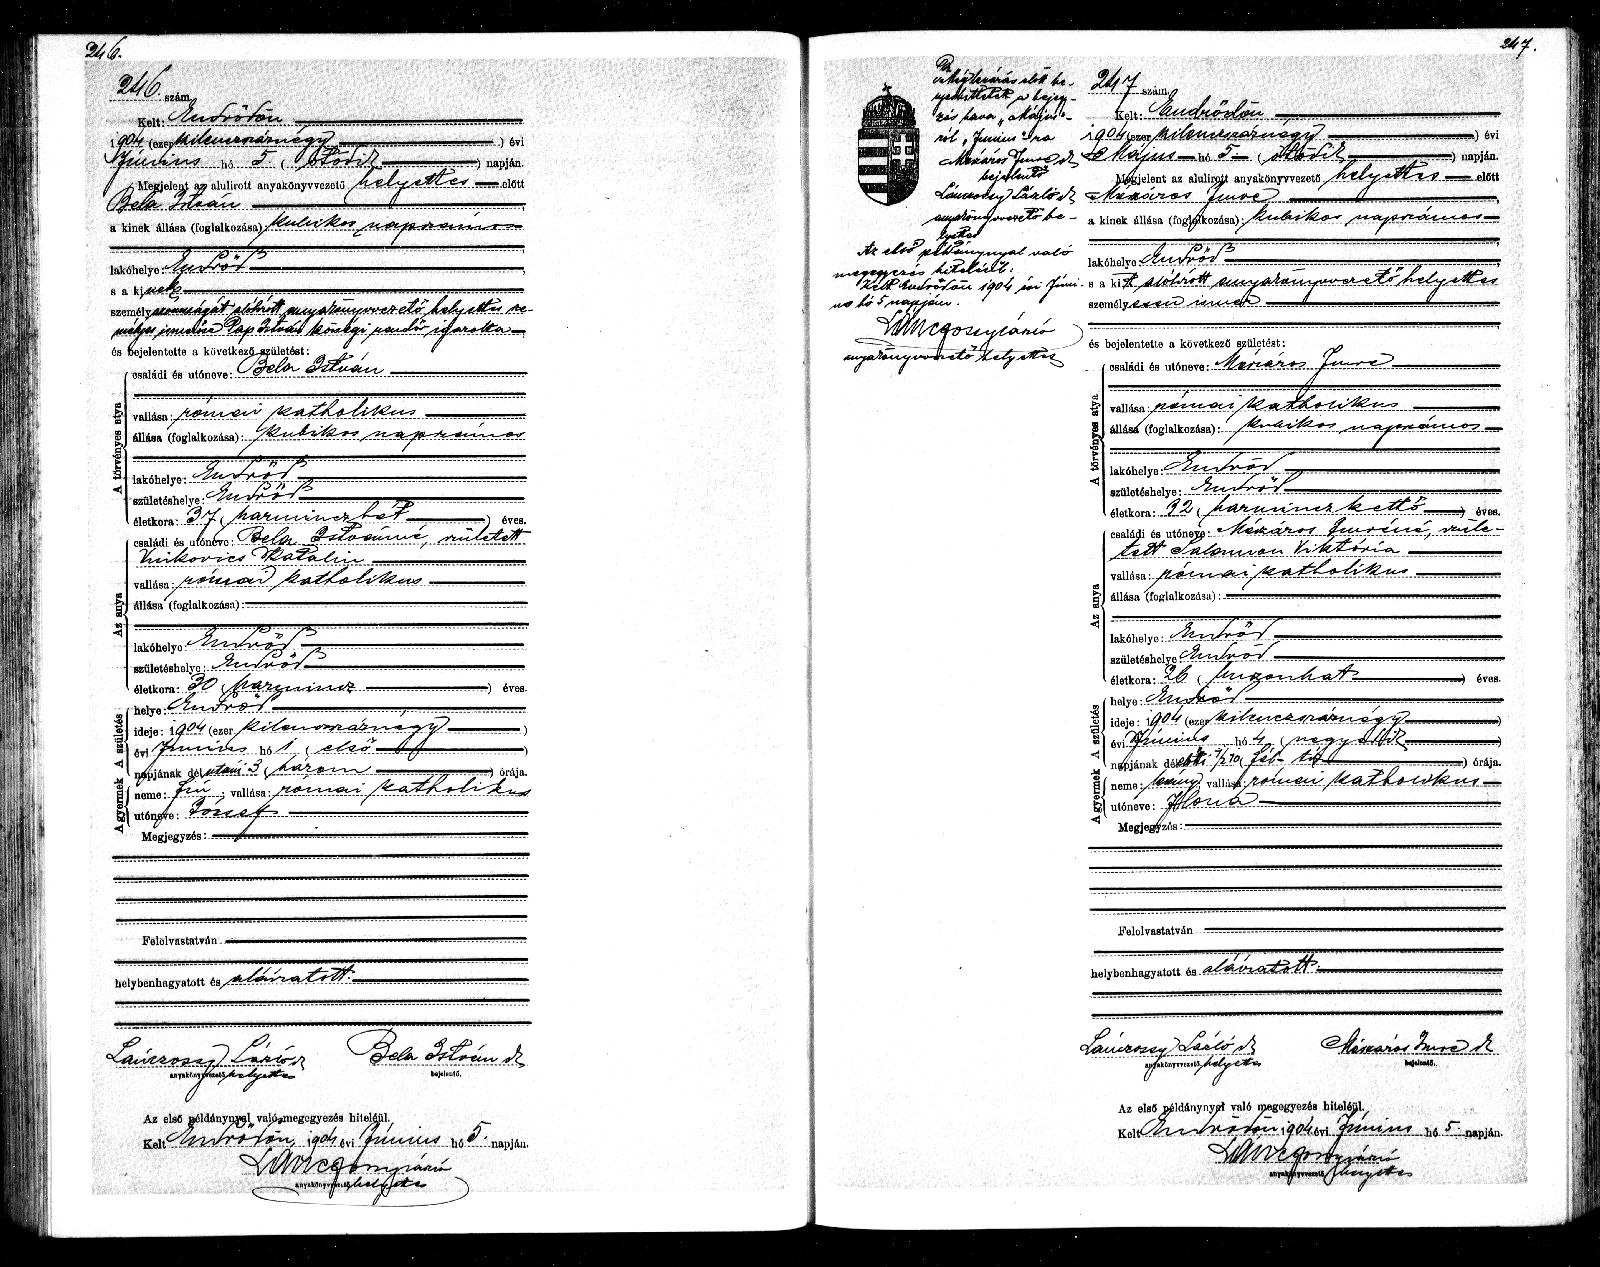 246.
246. szám.
Kelt: Endrődön
1904 (ezer kilencszáznégy) évi
Június hó 5 (ötödik) napján.
Megjelent az alulirott anyakönyvvezető helyettes előtt
Bela István
a kinek állása (foglalkozása): kubikos napszámos
lakóhelye: Endrőd
s a kinek
személyazonosságát alólírott anyakönyvvezető helyettes
ismerőse Pap István községi
és bejelentette a következő születést:
A törvényes atya
családi és utóneve: Bela István
vallása: római katholikus
állása (foglalkozása): kubikos napszámos
lakóhelye: Endrőd
születéshelye: Endrőd
életkora: 37 (harminczhét) éves.
Az anya
családi és utóneve: Bela Istvánné, született
Vinkovics Katalin
vallása: római katholikus
állása (foglalkozása):
lakóhelye: Endrőd
születéshelye: Endrőd
életkora: 30 (harmincz) éves.
A gyermek A születés
helye: Endrőd
ideje: 1904 (ezer kilencszáznégy)
évi Június hó 1 (első)
napjának délutáni 3 (három) órája.
neme: fiú; vallása: római katholikus
utóneve: József
Megjegyzés:
Felolvastatván
helybenhagyatott és aláíratott.
Lánczossy László sk
anyakönyvvezető helyettes
Bela István sk
bejelentő.
Az első példánynyal való megegyezés hiteléül.
Kelt Endrődön, 1904 évi Június hó 5. napján.
Lánczossy László
anyakönyvvezető helyettes
247.
Az
kézhigtvárás előtt be-
a bejegy-
zés hava „Május"-
ról „Június"-ra
Mészáros Imre sk
bejelentő
Lánczossy László sk
anyakönyvvezető he-
lyettes
Az első példánynyal való
megegyezés hiteléül:
Kelt Endrődön 1904 évi Júni-
us hó 5 napján.
Lánczossy László
anyakönyvvezető helyettes
247 szám.
Kelt: Endrődön
1904 (ezer kilencszáznégy) évi
Május hó 5 (ötödik) napján.
Megjelent az alulirott anyakönyvvezető helyettes előtt
Mészáros Imre
a kinek állása (foglalkozása): kubikos napszámos
lakóhelye: Endrőd
s a kit alólírott anyakönyvvezető helyettes
személyesen ismer
és bejelentette a következő születést:
A törvényes atya
családi és utóneve: Mészáros Imre
vallása: római katholikus
állása (foglalkozása): kubikos napszámos
lakóhelye: Endrőd
születéshelye: Endrőd
életkora: 32 (harminczkettő) éves.
Az anya
családi és utóneve: Mészáros Imréné, szüle-
tett Salamon Viktória
vallása: római katholikus
állása (foglalkozása):
lakóhelye: Endrőd
születéshelye: Endrőd
életkora: 26 (huszonhat) éves.
A gyermek A születés
helye: Endrőd
ideje: 1904 (ezer kilencszáznégy)
évi Június hó 4 (negyedik)
napjának délelőtti 1/2 10 (fél tíz) órája.
neme: leány; vallása: római katholikus
utóneve: Ilona
Megjegyzés:
Felolvastatván
helybenhagyatott és aláíratott.
Lánczossy László sk
anyakönyvvezető helyettes
Mészáros Imre sk
bejelentő.
Az első példánynyal való megegyezés hiteléül.
Kelt Endrődön 1904 évi Június hó 5. napján.
Lánczossy László
anyakönyvvezető helyettes